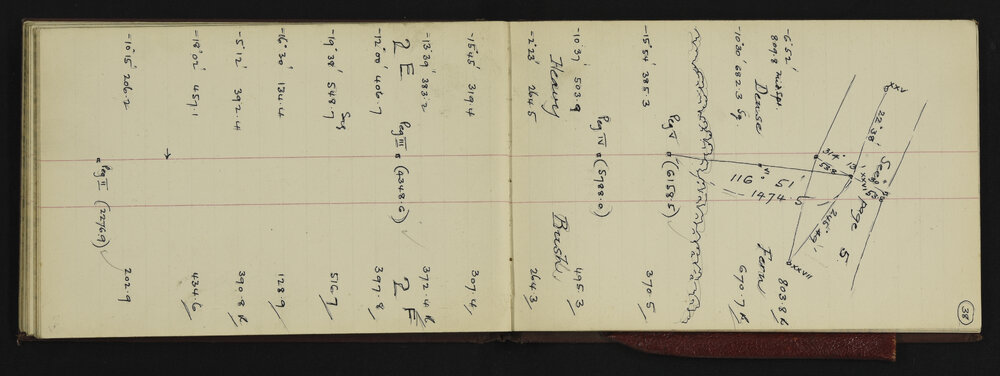 38
XXV
22° 38'
See page 5
XXVI
314° 13'
588
246° 49'
XXVII
116° 51'
1474.5
-6° 52'
809.8 mid spr. 803.8 R
Dense Fern
-10° 30' 682.3 Sg 670.7 R
Peg V (6158.5)
-15° 54' 385.3 370.5
Peg IV (5788.0)
-10° 37' 503.9 495.3
Heavy Bush
-2° 23' 264.5 264.3
-15° 45' 319.4 307.4
-13° 39' 383.2 372.4 R
2 E 2 E
Peg III (4348.6)
-12° 00' 406.7 397.8
-19° 38' 548.7 Sg 516.7
-16° 30' 134.4 128.9
-5° 12' 392.4 390.8 R
-18° 02' 457.1 434.6
Peg II (2276.9)
-10° 15 206.2 202.9